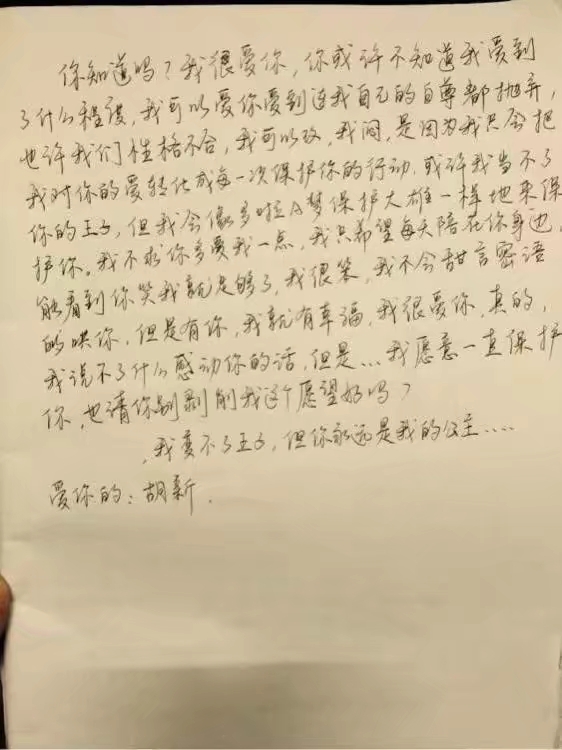 你知道吗？我很爱你，你或许不知道我爱到
了什么程度，我可以爱你爱到连我自己的自尊都抛弃，
也许我们性格不合，我可以改，我闷，是因为我只会把
我对你的爱转化成每一次保护你的行动，或许我当不了
你的王子，但我会像多啦A梦保护大雄一样地来保
护你。我不求你多爱我一点，我只希望每天陪在你身边，
能看到你笑我就足够了，我很笨，我不会甜言密语
的哄你，但是有你，我就有幸福，我很爱你，真的，
我说不了什么感动你的话，但是...我愿意一直保护
你，也请你别剥削我这个愿望好吗？
，我变不了王子，但你永远是我的公主.....
爱你的：胡新.